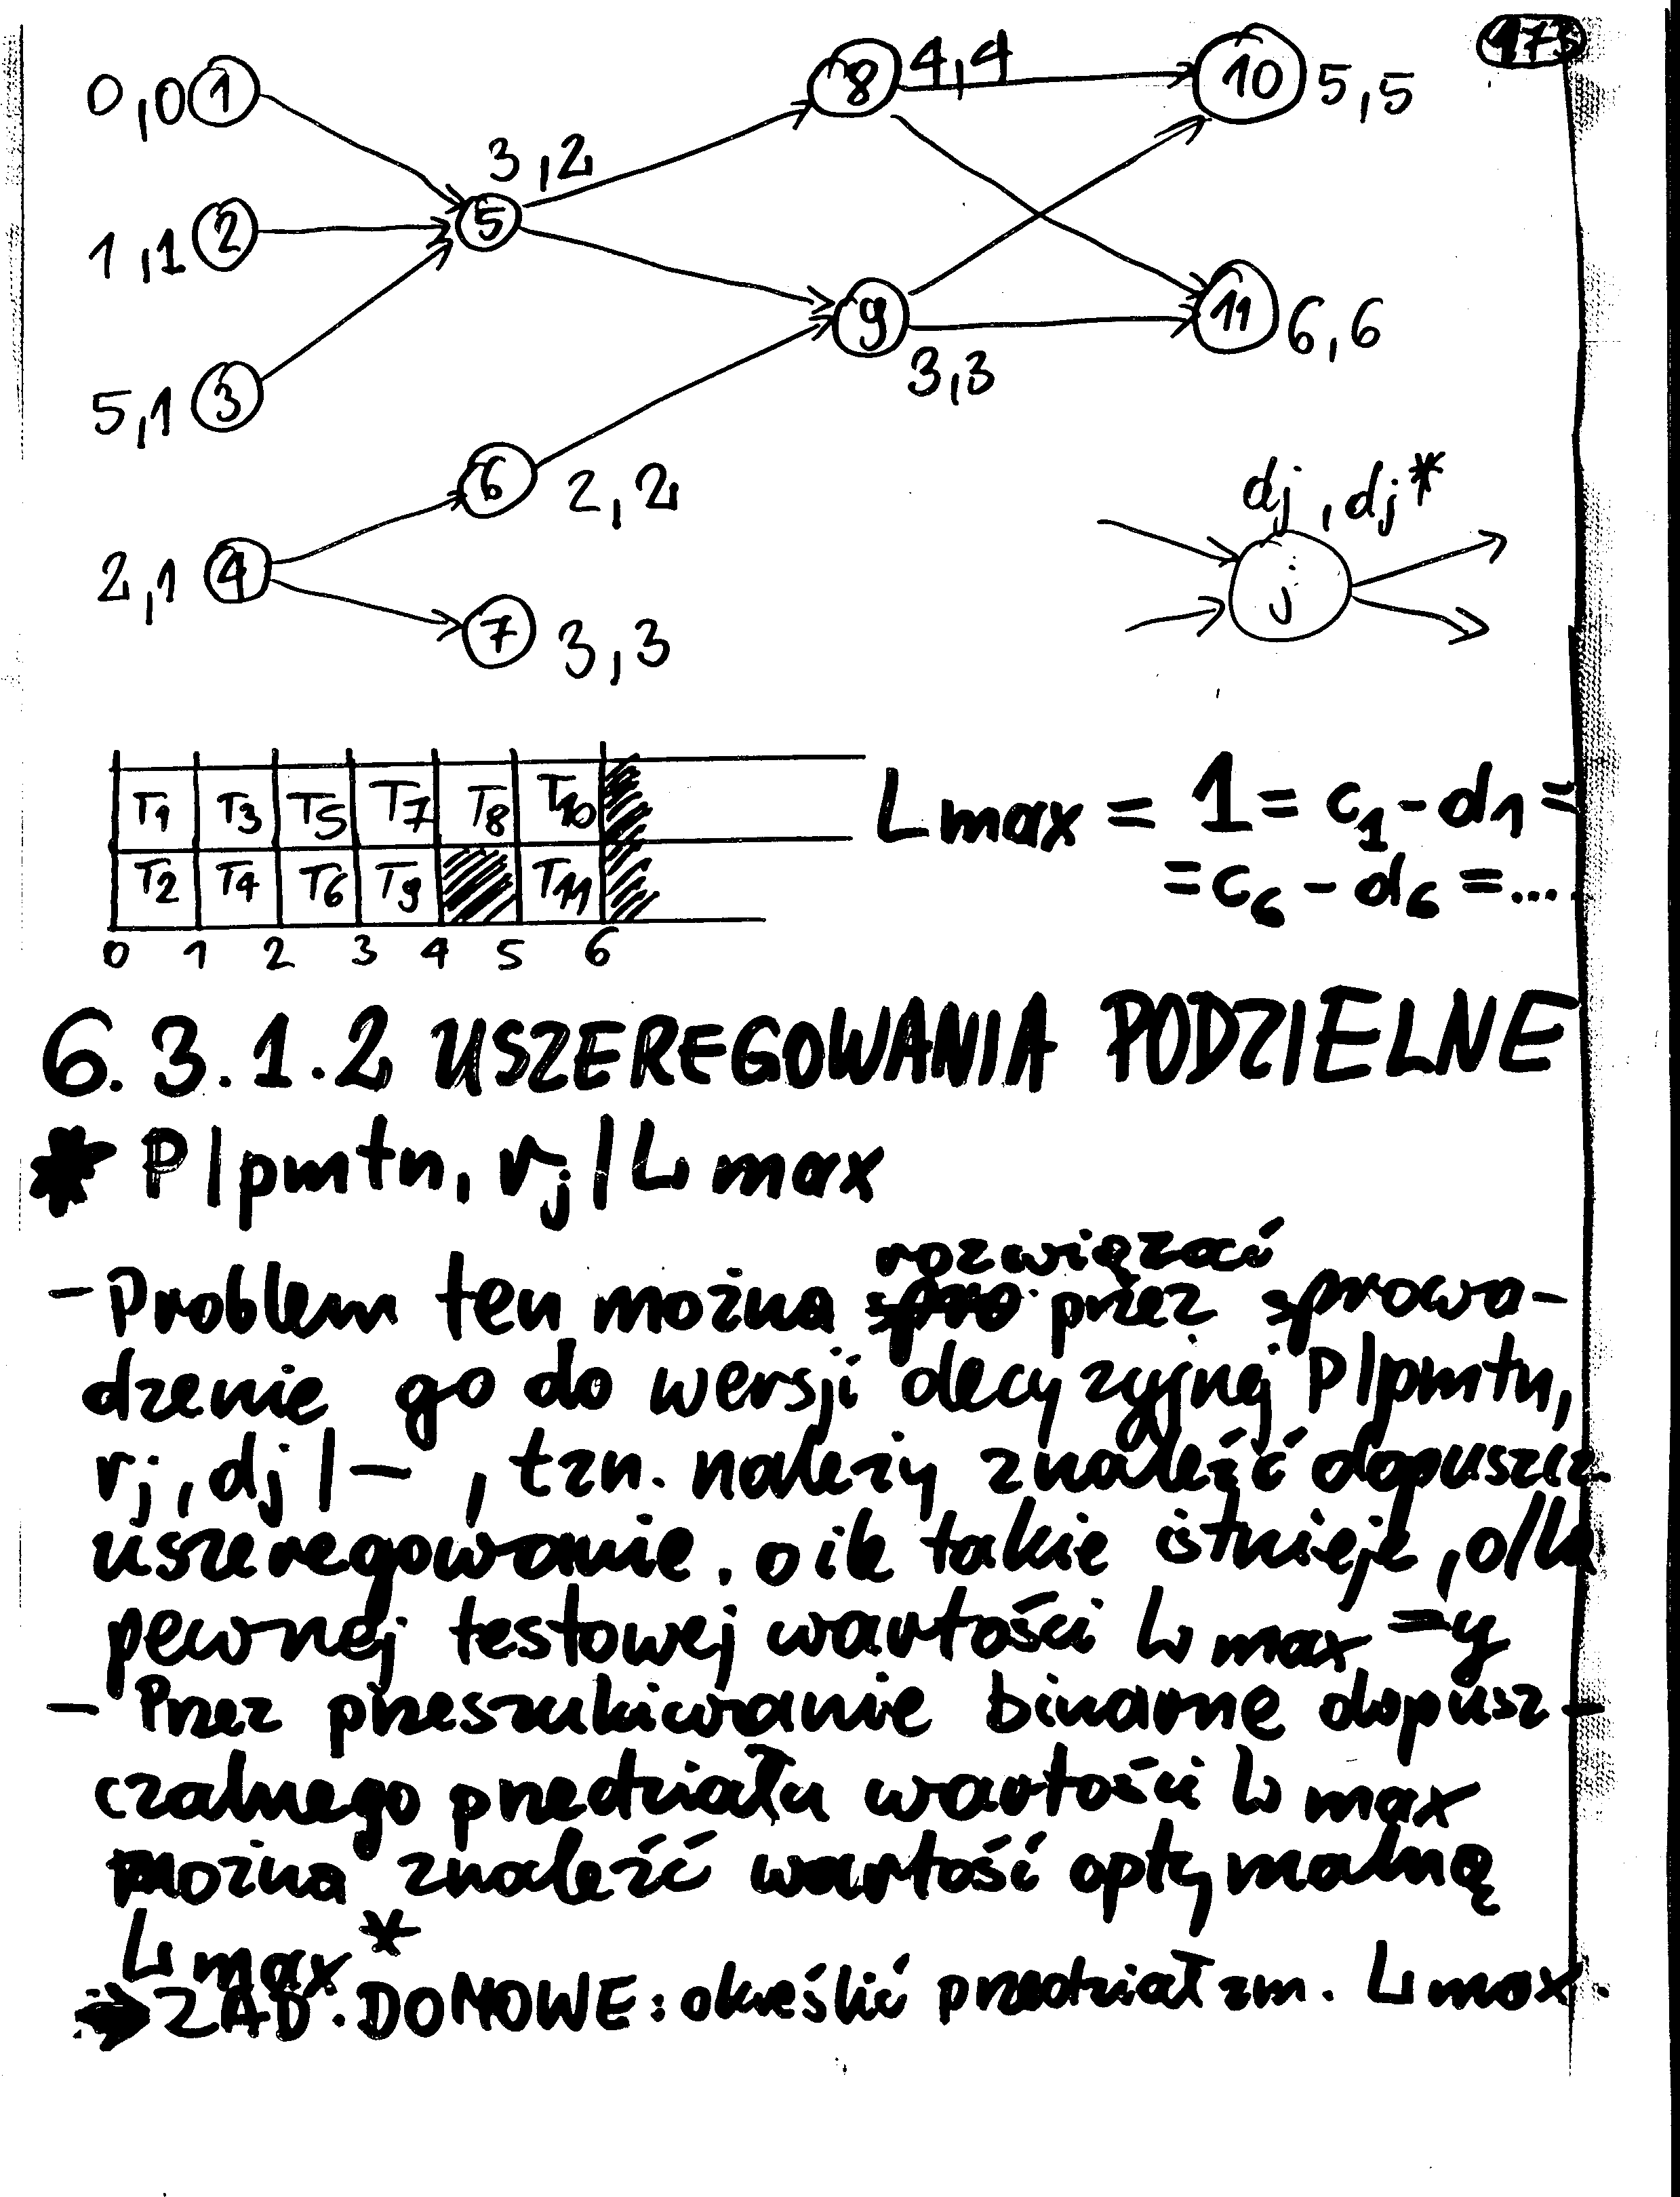 173
0,0 1
8 4,4
10 5,5
3,2
1,1 2
5
9
3,3
11 6,6
5,1 3
6 2,2
dj, dj*
j
2,1 4
7 3,3
T1 T3 T5 T7 T8 T10
T2 T4 T6 T9 T11
0 1 2 3 4 5 6
Lmax = 1 = c1 - d1 =
= c6 - d6 = ...
6.3.1.2 USZEREGOWANIA PODZIELNE
* P|pmtn, rj|Lmax
rozwiązać
- Problem ten można przez sprowa-
dzenie go do wersji decyzyjnej P|pmtn,
rj, dj|-, tzn. należy znaleźć dopuszcz.
uszeregowanie, o ile takie istnieje, dla
pewnej testowej wartości Lmax = y
- Przez przeszukiwanie binarne dopusz-
czalnego przedziału wartości Lmax
można znaleźć wartość optymalną
Lmax*
→ ZAD. DOMOWE: określić przedział zm. Lmax.